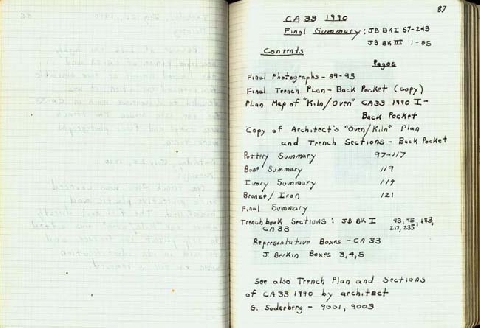 87
CA 33 1990
Final Summary: JB BK I 57-243
JB BK III 1-85
Contents
Pages
Final Photographs - 89-93
Final Trench Plan - Back Pocket (Copy)
Plan Map of "Kiln/Oven" CA33 1990 I-
Back Pocket
Copy of Architect's "Oven/Kiln" Plan
and Trench Sections - Back Pocket
Pottery Summary 97-117
Bone Summary 119
Ivory Summary 119
Bronze/Iron 121
Final Summary
Trenchbook Sections: JB BK I
CA 33
Representative Boxes - CA 33
J Berkin Boxes 3,4,5
See also Trench Plan and Sections
of CA33 1990 by architect
S. Suderberg - 9001, 9003